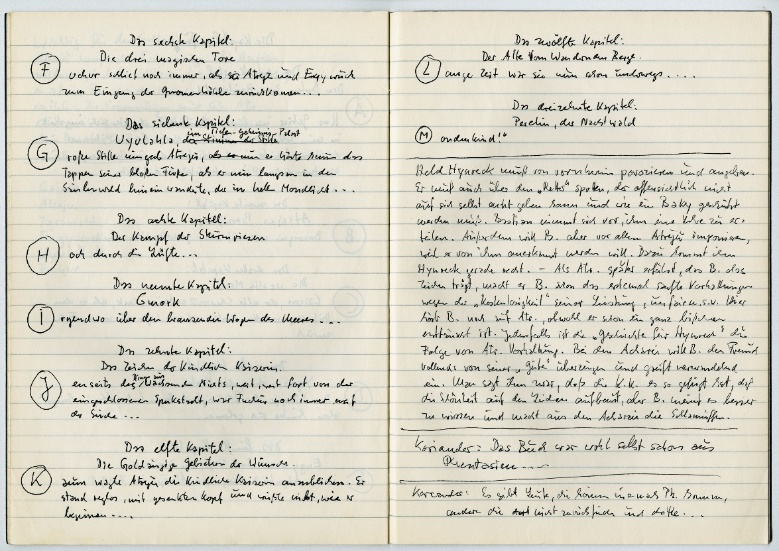 Das sechste Kapitel:
Die drei magischen Tore
F
sicher schlief noch immer, als Atréju und Engywuck
zum Eingang der Gnomenhöhle zurückkamen...
Das siebente Kapitel:
im Tiefen-Geheimnis-Palast
Uyulála, die Stimme der Stille
G
roße Stille umgab Atréju, als er nun er hörte nun das
Tappen seiner bloßen Füße, als er nun langsam in den
Säulenwald hineinwanderte, der im hellen Mondlicht...
Das achte Kapitel:
Der Kampf der Sturmriesen
H
och durch die Lüfte...
Das neunte Kapitel:
Gmork
I
rgendwo über den brausenden Wogen des Meeres....
Das zehnte Kapitel:
Das Zeichen der Kindlichen Kaiserin
J
enseits des wachsenden Nichts, weit, weit fort von der
eingeschlossenen Spukstadt, war Fuchur noch immer auf
der Suche...
Das elfte Kapitel:
Die Goldäugige Gebieterin der Wünsche.
K
aum wagte Atréju die Kindliche Kaiserin anzublicken. Er
stand reglos, mit gesenktem Kopf und wußte nicht, wie er
beginnen....
Das zwölfte Kapitel:
Der Alte Vom Wandernden Berge.
L
ange Zeit war sie nun schon unterwegs....
Das dreizehnte Kapitel:
Perelín, der Nachtwald
M
ondenkind!"
Held Hynreck muß von vornherein provozieren und angeben.
Er muß auch über den "Retter" spotten, der offensichtlich nicht
auf sich selbst acht geben kann und wie ein Baby gehütet
werden muß. Bastian nimmt sich vor, ihm eine Lehre zu er-
teilen. Außerdem will B. aber vor allem Atréju imponieren,
weil er von ihm anerkannt werden will. Dazu kommt ihm
Hynreck gerade recht. – Als Atr. später erfährt, daß B. das
Zeichen trägt, macht er B. schon das erstemal sanfte Vorhaltungen
wegen der "Kostenlosigkeit" seiner Leistung, u.s.w. Hier
hört B. noch auf Atr., obwohl er schon ein ganz bißchen
enttäuscht ist. Jedenfalls ist die "Geschichte für Hynreck" die
Folge von Atr. Vorhaltung. Bei den Acharai will B. den Freund
vollends von seiner "Güte" überzeugen und greift verwandelnd
ein. Man sagt ihm zwar, daß die K.K. es so gefügt hat, daß
die Schönheit auf dem Leiden aufbaut, aber B. meint es besser
zu wissen und macht aus den Acharai die Schlamuffen.
Koriander: Das Buch war wohl selbst schon aus
Phantásien....
Koreander: Es gibt Leute, die können niemals Ph. kommen,
andere die nicht zurückfinden und dort...